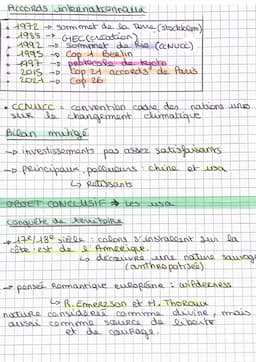 Accords internationaux
• 1972 → sommet de la Terre (stockholm)
• 1988 → GIEC (création)
• 1992 → sommet de Rio (CCNUCC)
• 1995 → Cop 1 Berlin
• 1997 → protocole de kyoto
• 2015 → Cop 21 accords de Paris
• 2021 → Cop 26
• CCNUCC = convention cadre des nations unies
sur le changement climatique
Bilan mitigé
→ investissements pas assez satisfaisants
→ principaux pollueurs : chine et usa
↳ Rétissants
OBJET CONCLUSIF → Les usa
conquête de territoire
→ 17e/18e siècle : colons s'installent sur la
côte est de l'Amérique.
↳ découvre une nature sauvage
(anthropisée)
→ pensée Romantique européenne : wilderness
↳ R. Emerzson et H. Thoreaux
nature considérée comme divine, mais
aussi comme source de liberté
et de courage.